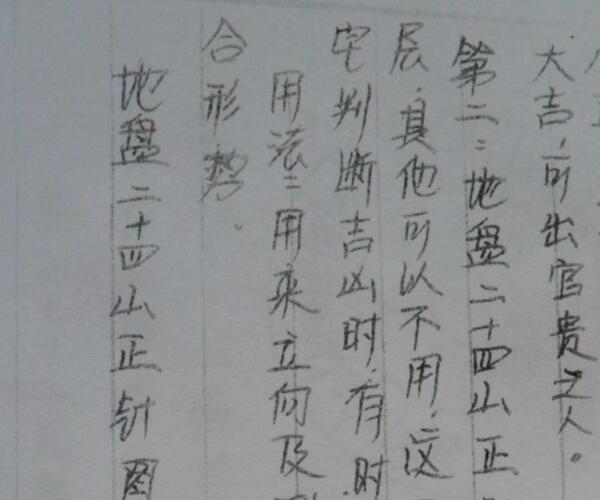 大吉，可出官贵之人。
第二：地盘二十四山正
层，其他可以不用，这
定判断吉凶时，有时
用法：用来立向及
合形势。
地盘二十四山正针图